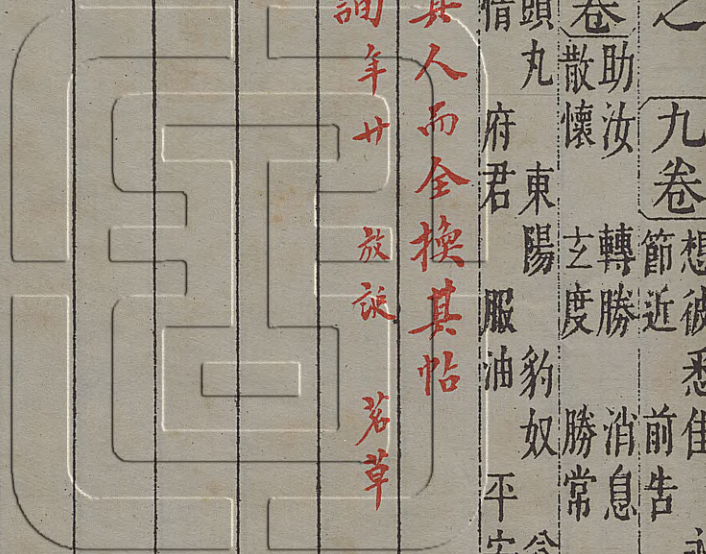 九卷
想彼 悉佳
節近 前告
卷
助汝 轉勝 消息
散懷 玄度 勝常
頭丸 東陽 豹奴
情 府君 服油 平安
其人而全換其帖
年廿 放 茗草